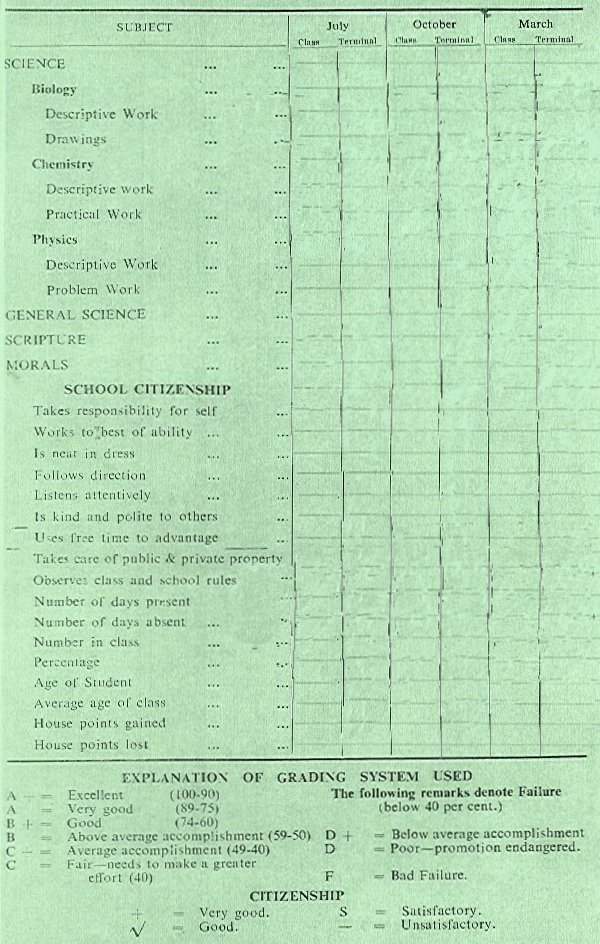 SUBJECT July October March
Class Terminal Class Terminal Class Terminal
SCIENCE ... ...
Biology ... ...
Descriptive Work ... ...
Drawings ... ...
Chemistry ... ...
Descriptive work ... ...
Practical Work ... ...
Physics ... ...
Descriptive Work ... ...
Problem Work ... ...
GENERAL SCIENCE ... ...
SCRIPTURE ... ...
MORALS ... ...
SCHOOL CITIZENSHIP
Takes responsibility for self ...
Works to best of ability ... ...
Is neat in dress ... ...
Follows direction ... ...
Listens attentively ... ...
Is kind and polite to others ...
Uses free time to advantage ...
Takes care of public & private property
Observes class and school rules ...
Number of days present ...
Number of days absent ... ...
Number in class ... ...
Percentage ... ...
Age of Student ... ...
Average age of class ... ...
House points gained ... ...
House points lost ... ...
EXPLANATION OF GRADING SYSTEM USED
A + = Excellent (100-90) The following remarks denote Failure
A = Very good (89-75) (below 40 per cent.)
B + = Good (74-60)
B = Above average accomplishment (59-50) D + = Below average accomplishment
C + = Average accomplishment (49-40) D = Poor—promotion endangered.
C = Fair—needs to make a greater
effort (40) F = Bad Failure.
CITIZENSHIP
+ = Very good. S = Satisfactory.
√ = Good. — = Unsatisfactory.